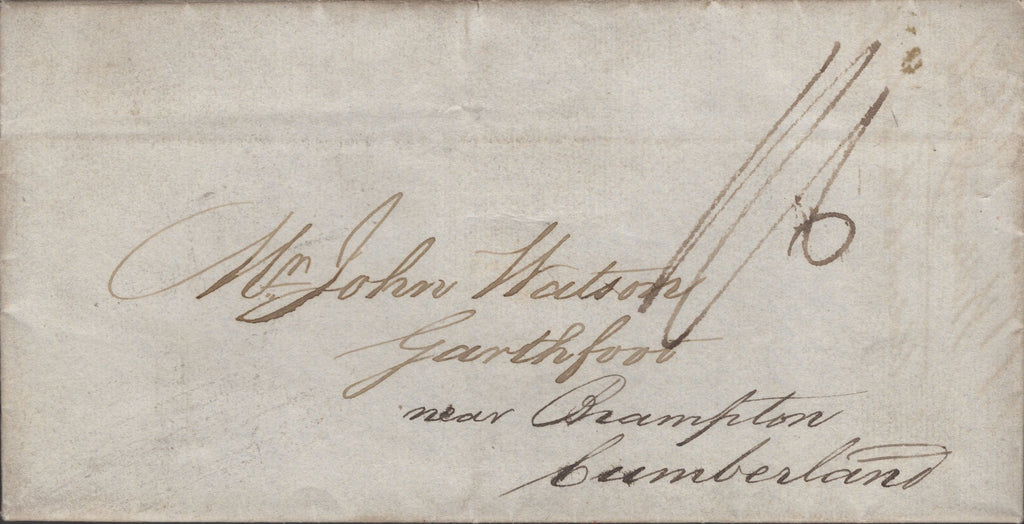 1/6
Mr. John Watson
Garthfoot
near Brampton
Cumberland